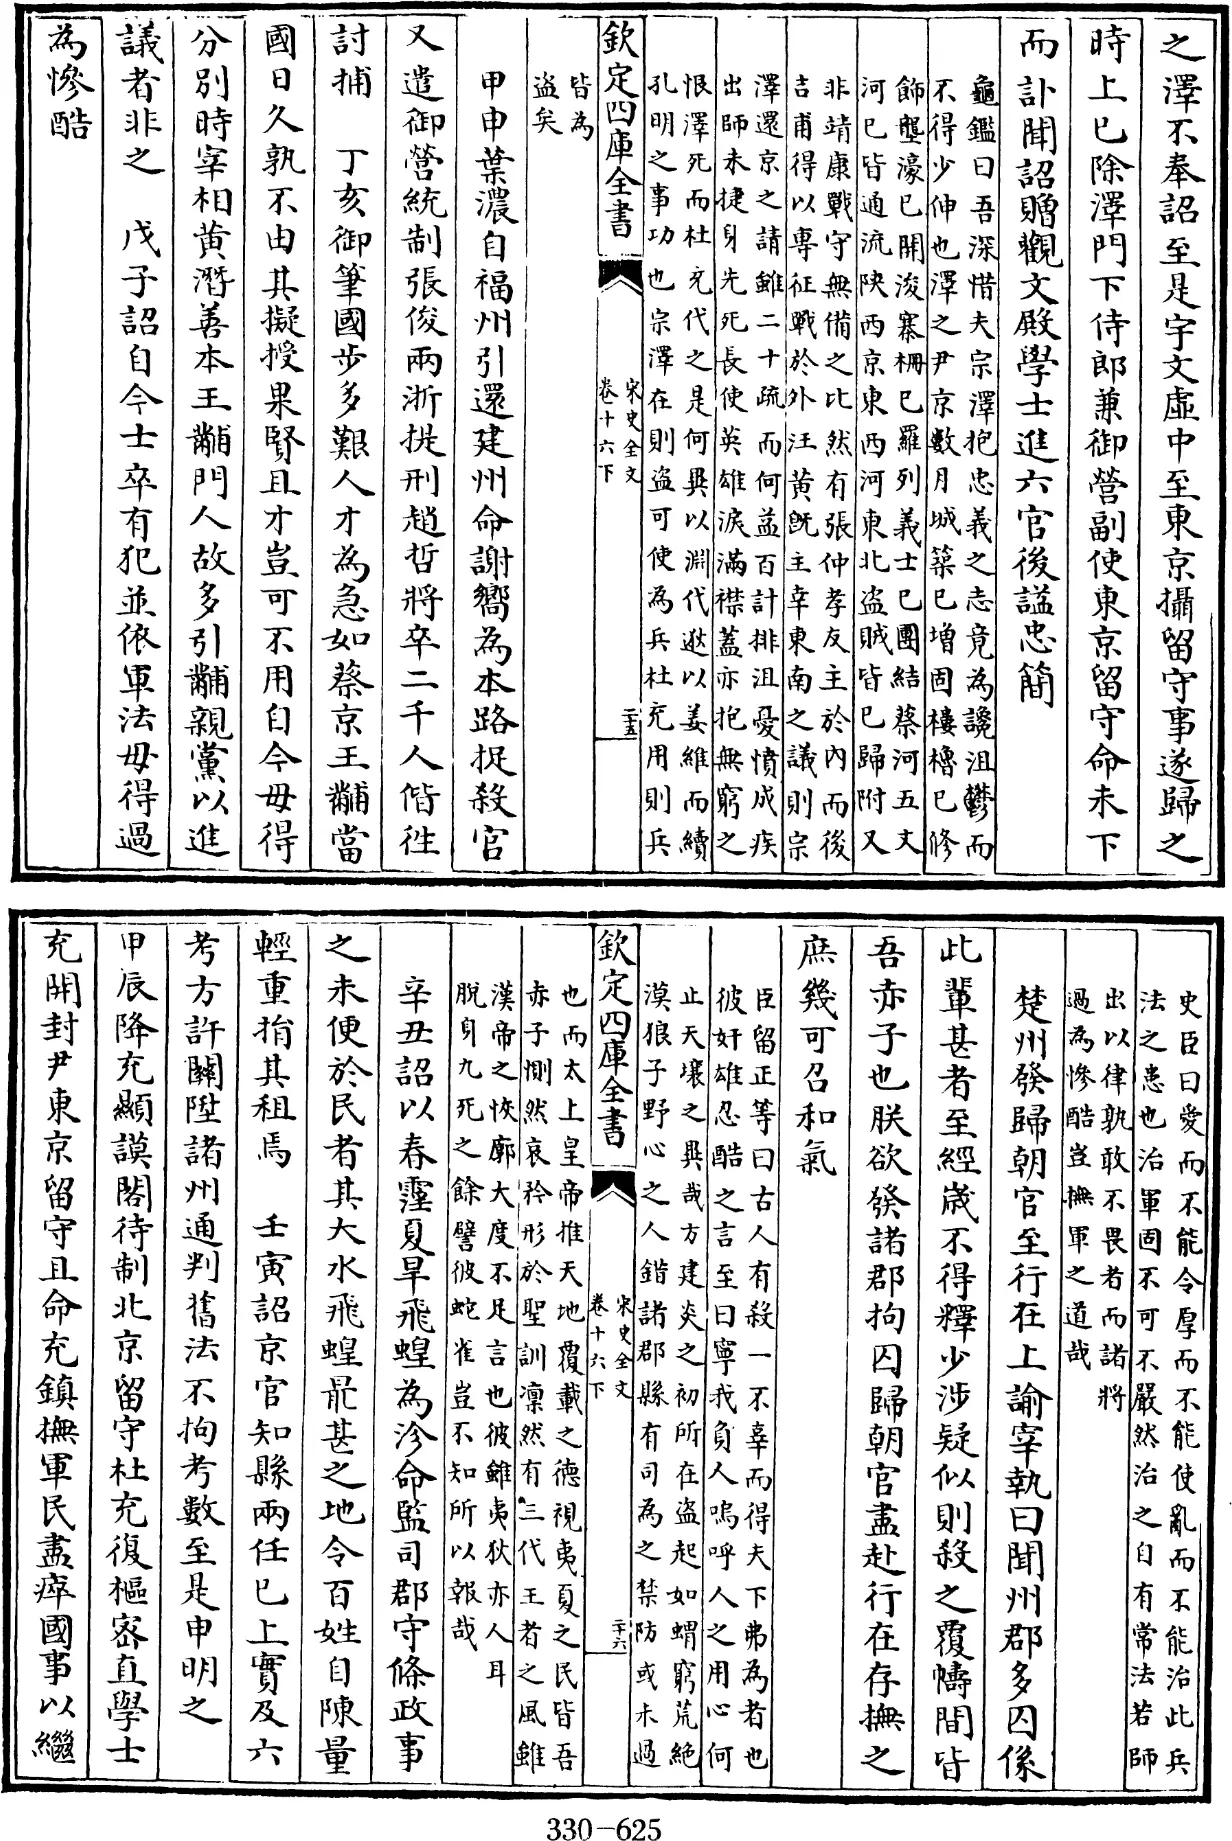 之澤不奉詔至是宇文虛中至東京攝留守事遂歸之
時上已除澤門下侍郎兼御營副使東京留守命未下
而訃聞詔贈觀文殿學士進六官後諡忠簡
龜鑑曰吾深惜夫宗澤抱忠義之志竟為讒沮鬱而
不得少伸也澤之尹京數月城築已增固樓櫓已修
飾壍濠已開浚寨柵已羅列義士已團結蔡河五丈
河已皆通流陜西京東西河東北盗賊皆已歸附又
非靖康戰守無備之比然有張仲孝友主於内而後
吉甫得以專征戰於外汪黄既主幸東南之議則宗
澤還京之請雖二十疏而何益百計排沮憂憤成疾
出師未捷身先死長使英雄淚滿襟蓋亦抱無窮之
恨澤死而杜充代之是何異以淵代逖以姜維而續
孔明之事功也宗澤在則盗可使為兵杜充用則兵
皆為
盗矣
欽定四庫全書
宋史全文
卷十六下
二十五
甲申葉濃自福州引還建州命謝嚮為本路捉殺官
又遣御營統制張俊兩浙提刑趙哲將卒二千人偕徃
討捕　丁亥御筆國步多艱人才為急如蔡京王黼當
國日久孰不由其擬授果賢且才豈可不用自今毋得
分別時宰相黄潛善本王黼門人故多引黼親黨以進
議者非之　戊子詔自今士卒有犯並依軍法毋得過
為慘酷
史臣曰愛而不能令厚而不能使亂而不能治此兵
法之患也治軍固不可不嚴然治之自有常法若師
出以律孰敢不畏者而諸將
過為慘酷豈撫軍之道哉
楚州發歸朝官至行在上諭宰執曰聞州郡多囚係
此輩甚者至經歲不得釋少渉疑似則殺之覆幬間皆
吾赤子也朕欲發諸郡拘囚歸朝官盡赴行在存撫之
庶幾可召和氣
臣留正等曰古人有殺一不辜而得天下弗為者也
彼奸雄忍酷之言至曰寧我負人嗚呼人之用心何
止天壤之異哉方建炎之初所在盗起如蝟窮荒絶
漠狼子野心之人錯諸郡縣有司為之禁防或未過
欽定四庫全書
宋史全文
卷十六下
二十六
也而太上皇帝推天地覆載之徳視夷夏之民皆吾
赤子惻然哀矜形於聖訓凛然有三代王者之風雖
漢帝之恢廓大度不足言也彼雖夷狄亦人耳
脱身九死之餘譬彼蛇雀豈不知所以報哉
辛丑詔以春霪夏旱飛蝗為沴命監司郡守條政事
之未便於民者其大水飛蝗最甚之地令百姓自陳量
輕重捐其租焉　壬寅詔京官知縣兩任已上實及六
考方許關陞諸州通判舊法不拘考數至是申明之
甲辰降充顯謨閣待制北京留守杜充復樞密直學士
充開封尹東京留守且命充鎮撫軍民盡瘁國事以繼
330-625